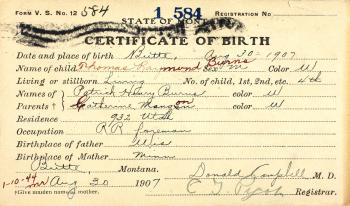 FORM V. S. No. 12 584 1 584 REGISTRATION No
STATE OF MONT
CERTIFICATE OF BIRTH
Date and place of birth Butte, Aug 30, 1907
Name of child Thomas Burns Sex M Color W
Living or stillborn Living No. of child, 1st, 2nd, etc. 4th
Names of Patrick Henry Burns Color W
Parents† Catherine Mangon Color W
Residence 932 Utah
Occupation RR foreman
Birthplace of father Wis
Birthplace of Mother Minn
Butte, Montana. Donald Campbell M. D.
1-10-44 Aug 30 1907 Registrar.
†Give maiden name of mother.